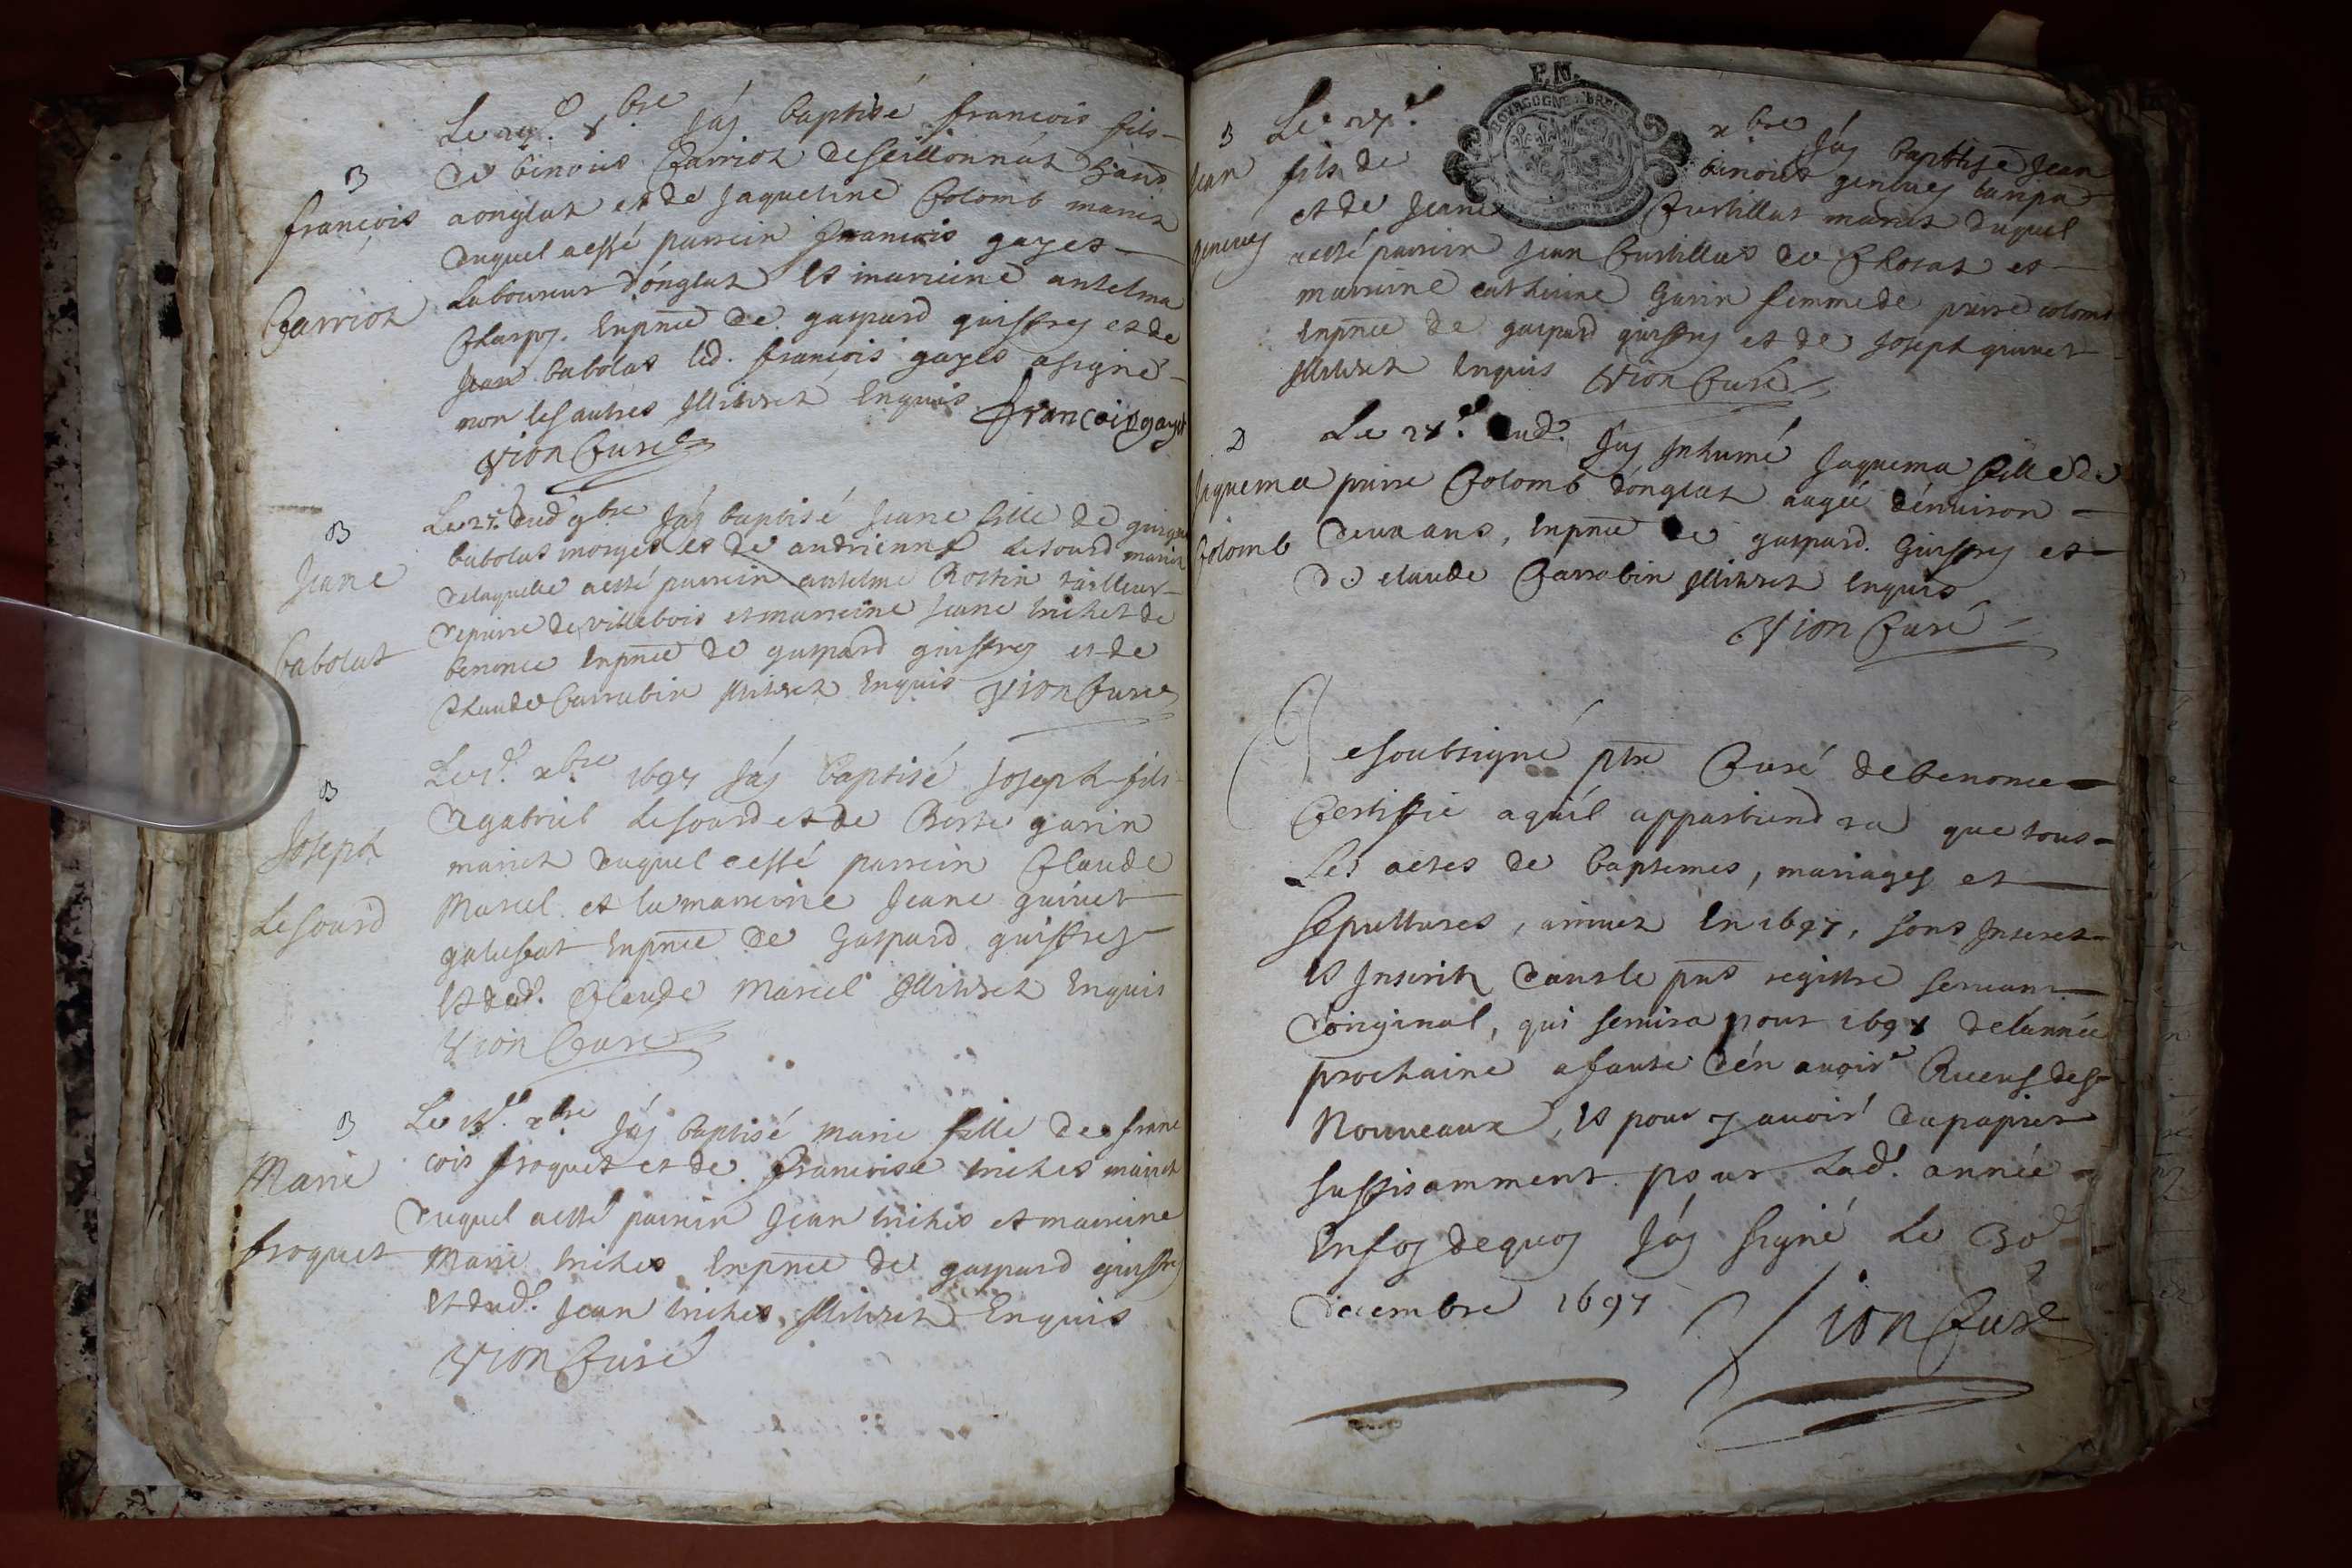 Le 29.e 8.bre Jáy baptisé françois fils
B
de benoist Carrioz de seillonnáz hant
françois
a onglaz et de Jaqueline Colomb mariez
duquel aesté parrein françois gayet
Laboureur d'onglaz et marreine antelma
Carrioz
Charpy. Enpnce de gaspard guiffrey et de
Jean babolat led. françois gayet a signé
non les autres illitérez Enquis françois gayet
Vion Curé
Le 27.e dud 9bre Jáy baptisé Jeane fille de
B
babolat morgez et de andrienne Lesourd mariez
Jeane
delaquelle aesté parrein antelme Rostin tailleur
depierre de villebois et marreine Jeane trichet de
babolat
benonce Enpnce de gaspard guiffrey et de
Claude Carrabin illitérez Enquis Vion Curé
Le d. xbre 1697 Jáy baptisé Joseph fils
B
de gabriel Lesourd et de garin
Joseph
mariez duquel aessé parrein Claude
Lesourd
Marcel et la marreine Jeane guinet
Enpnce de Gaspard guiffrey
Et dud. Claude Marcel illitérez Enquis
Vion Curé
B
Le xbre Jáy baptisé marie fille de fran
Marie
cois froquet et de francoise trichet mariez
duquel aesté parrein Jean trichet et marreine
froquet
Marie trichet Enpnce de gaspard guiffrey
Et dud. Jean trichet, illitérez Enquis
Vion Curé
P.N.
BOURGOGNE BRES
B
Le 27.e xbre Jáy baptisé Jean
Jean
fils de benoist genevey
et de Jeane Curtillat mariez duquel
genevey
aesté parrein Jean Curtillat de et
marreine catherine Garin femme de pierre colomb
Enpnce de gaspard guiffrey et de Joseph guinet
illitérez Enquis Vion Curé
D
Le 28.e dud. Jáy Inhumé Jaquema fille de
Jaquema
pierre Colomb d'onglaz aagée d'environ
Colomb
deux ans, Enpnce de gaspard. Guiffrey et
de claude Carrabin illitérez Enquis
Vion Curé
Je soubsigné ptre Curé de benonce
Certiffie a qu'il appartiendra que tous
Les actes de baptemes, mariages et
sepultures, arrivez En 1697, sont Inserez
Et Inscritz dans le pnt registre servant
d'original, qui servira pour 1698 de l'année
prochaine a faute d'en avoir Receus des
Nouveaux, Et pour y avoir du papier
suffisamment pour lad. année
Enfoy dequoy Jáy signé Le 30
decembre 1697
Vion Curé